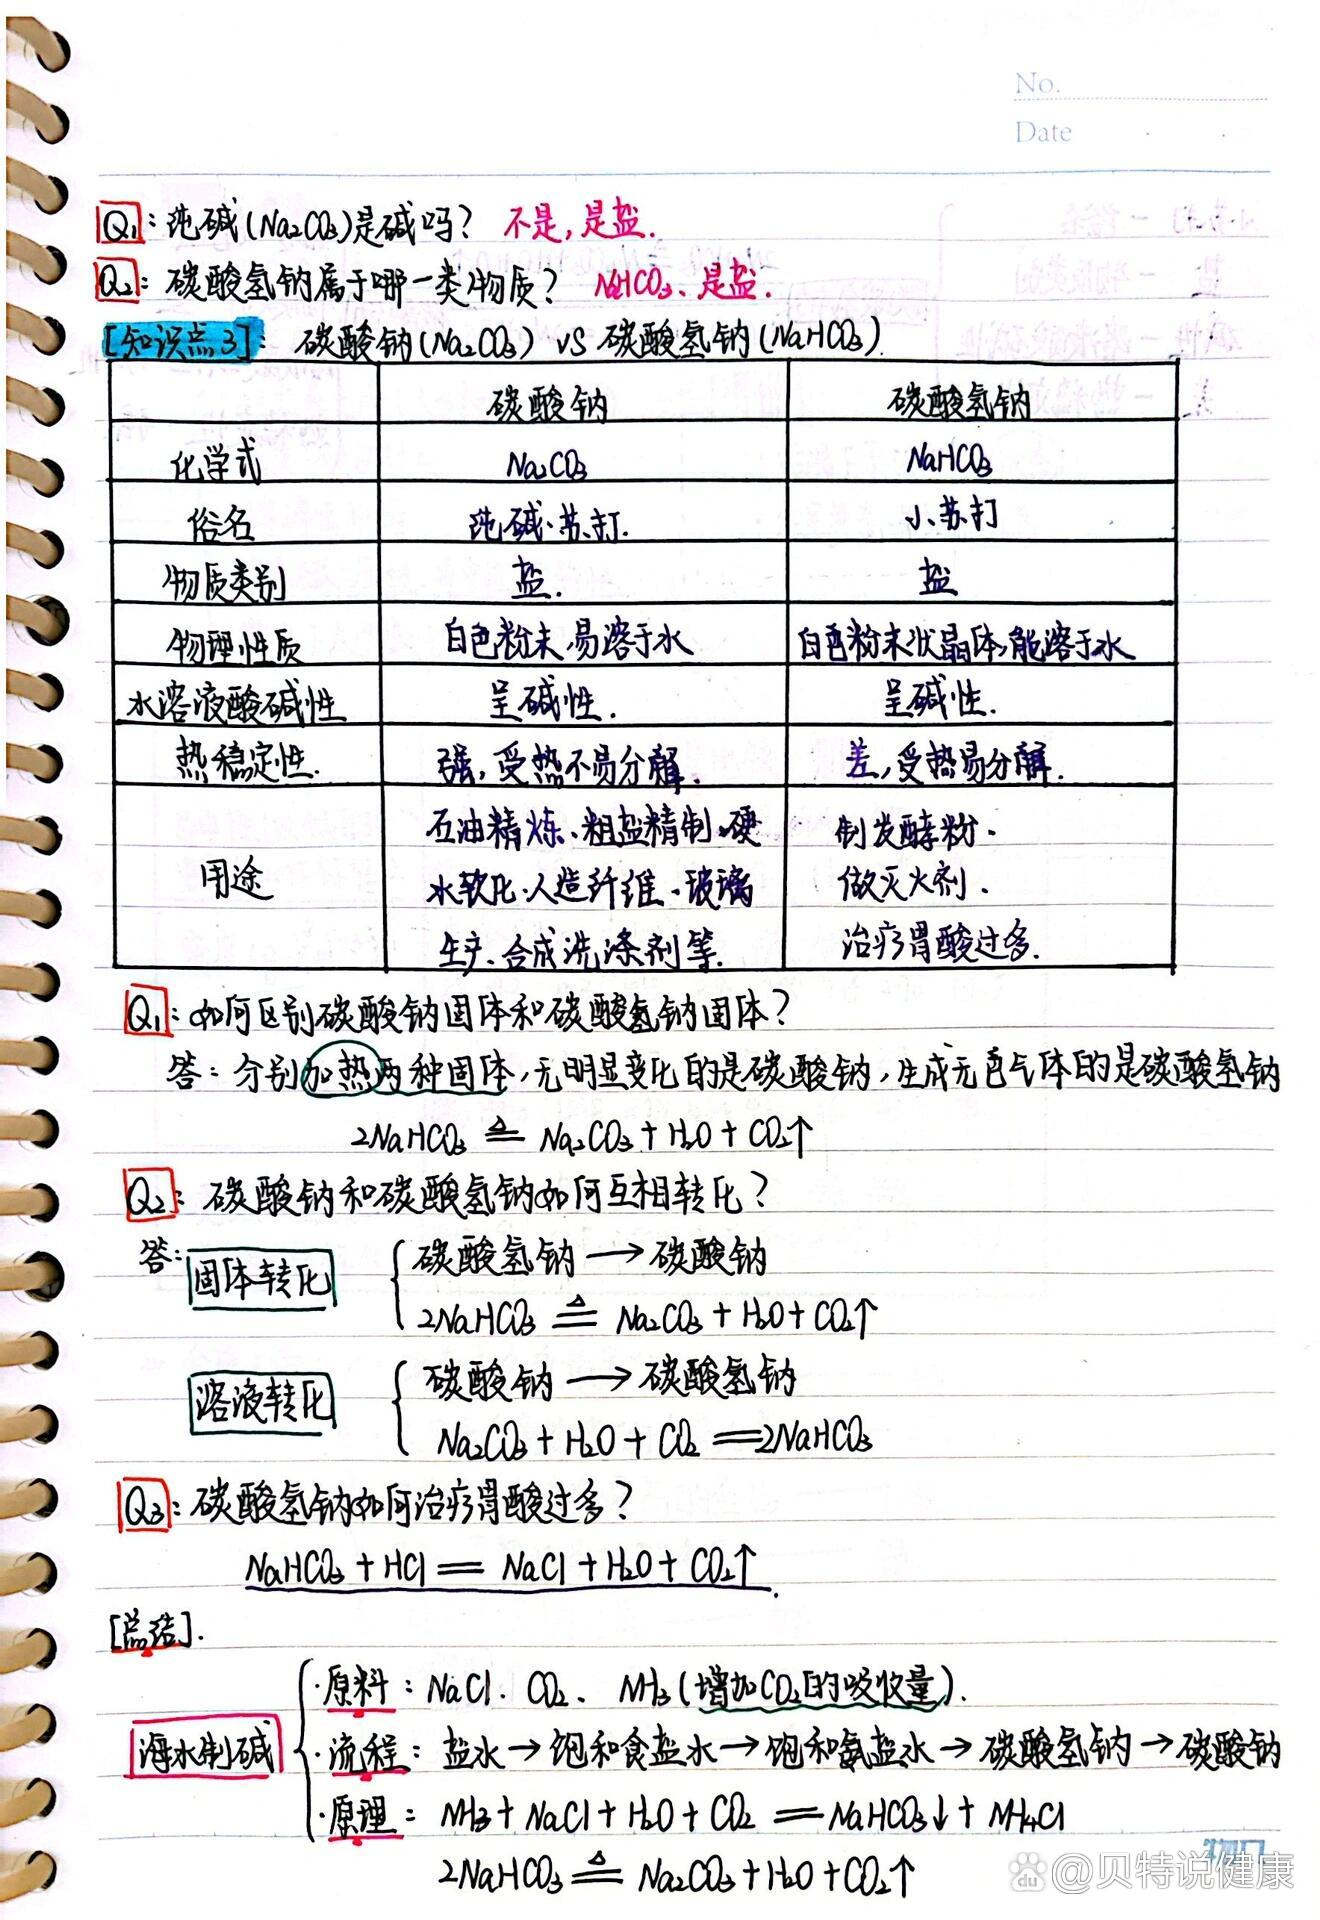 No.
Date
Q1: 纯碱(Na₂CO₃)是碱吗? 不是,是盐.
Q2: 碳酸氢钠属于哪一类物质? NaHCO₃、是盐.
[知识点3]: 碳酸钠(Na₂CO₃) VS 碳酸氢钠(NaHCO₃).
碳酸钠 碳酸氢钠
化学式 Na₂CO₃ NaHCO₃
俗名 纯碱、苏打. 小苏打
物质类别 盐. 盐
物理性质 白色粉末,易溶于水 白色粉末状晶体,能溶于水
水溶液酸碱性 呈碱性. 呈碱性.
热稳定性. 强,受热不易分解. 差,受热易分解.
用途
石油精炼、粗盐精制、硬
水软化、人造纤维、玻璃
生产、合成洗涤剂等.
制发酵粉.
做灭火剂.
治疗胃酸过多.
Q1: 如何区别碳酸钠固体和碳酸氢钠固体?
答: 分别加热两种固体,无明显变化的是碳酸钠,生成无色气体的是碳酸氢钠
2NaHCO₃ ≜ Na₂CO₃ + H₂O + CO₂↑
Q2: 碳酸钠和碳酸氢钠如何互相转化?
答: 固体转化 { 碳酸氢钠 → 碳酸钠
2NaHCO₃ ≜ Na₂CO₃ + H₂O + CO₂↑
溶液转化 { 碳酸钠 → 碳酸氢钠
Na₂CO₃ + H₂O + CO₂ == 2NaHCO₃
Q3: 碳酸氢钠如何治疗胃酸过多?
NaHCO₃ + HCl == NaCl + H₂O + CO₂↑
[总结].
海水制碱
·原料: NaCl、CO₂、NH₃(增加CO₂的吸收量).
·流程: 盐水→饱和食盐水→饱和氨盐水→碳酸氢钠→碳酸钠
·原理: NH₃ + NaCl + H₂O + CO₂ == NaHCO₃↓ + NH₄Cl
2NaHCO₃ ≜ Na₂CO₃ + H₂O + CO₂↑
@贝特说健康